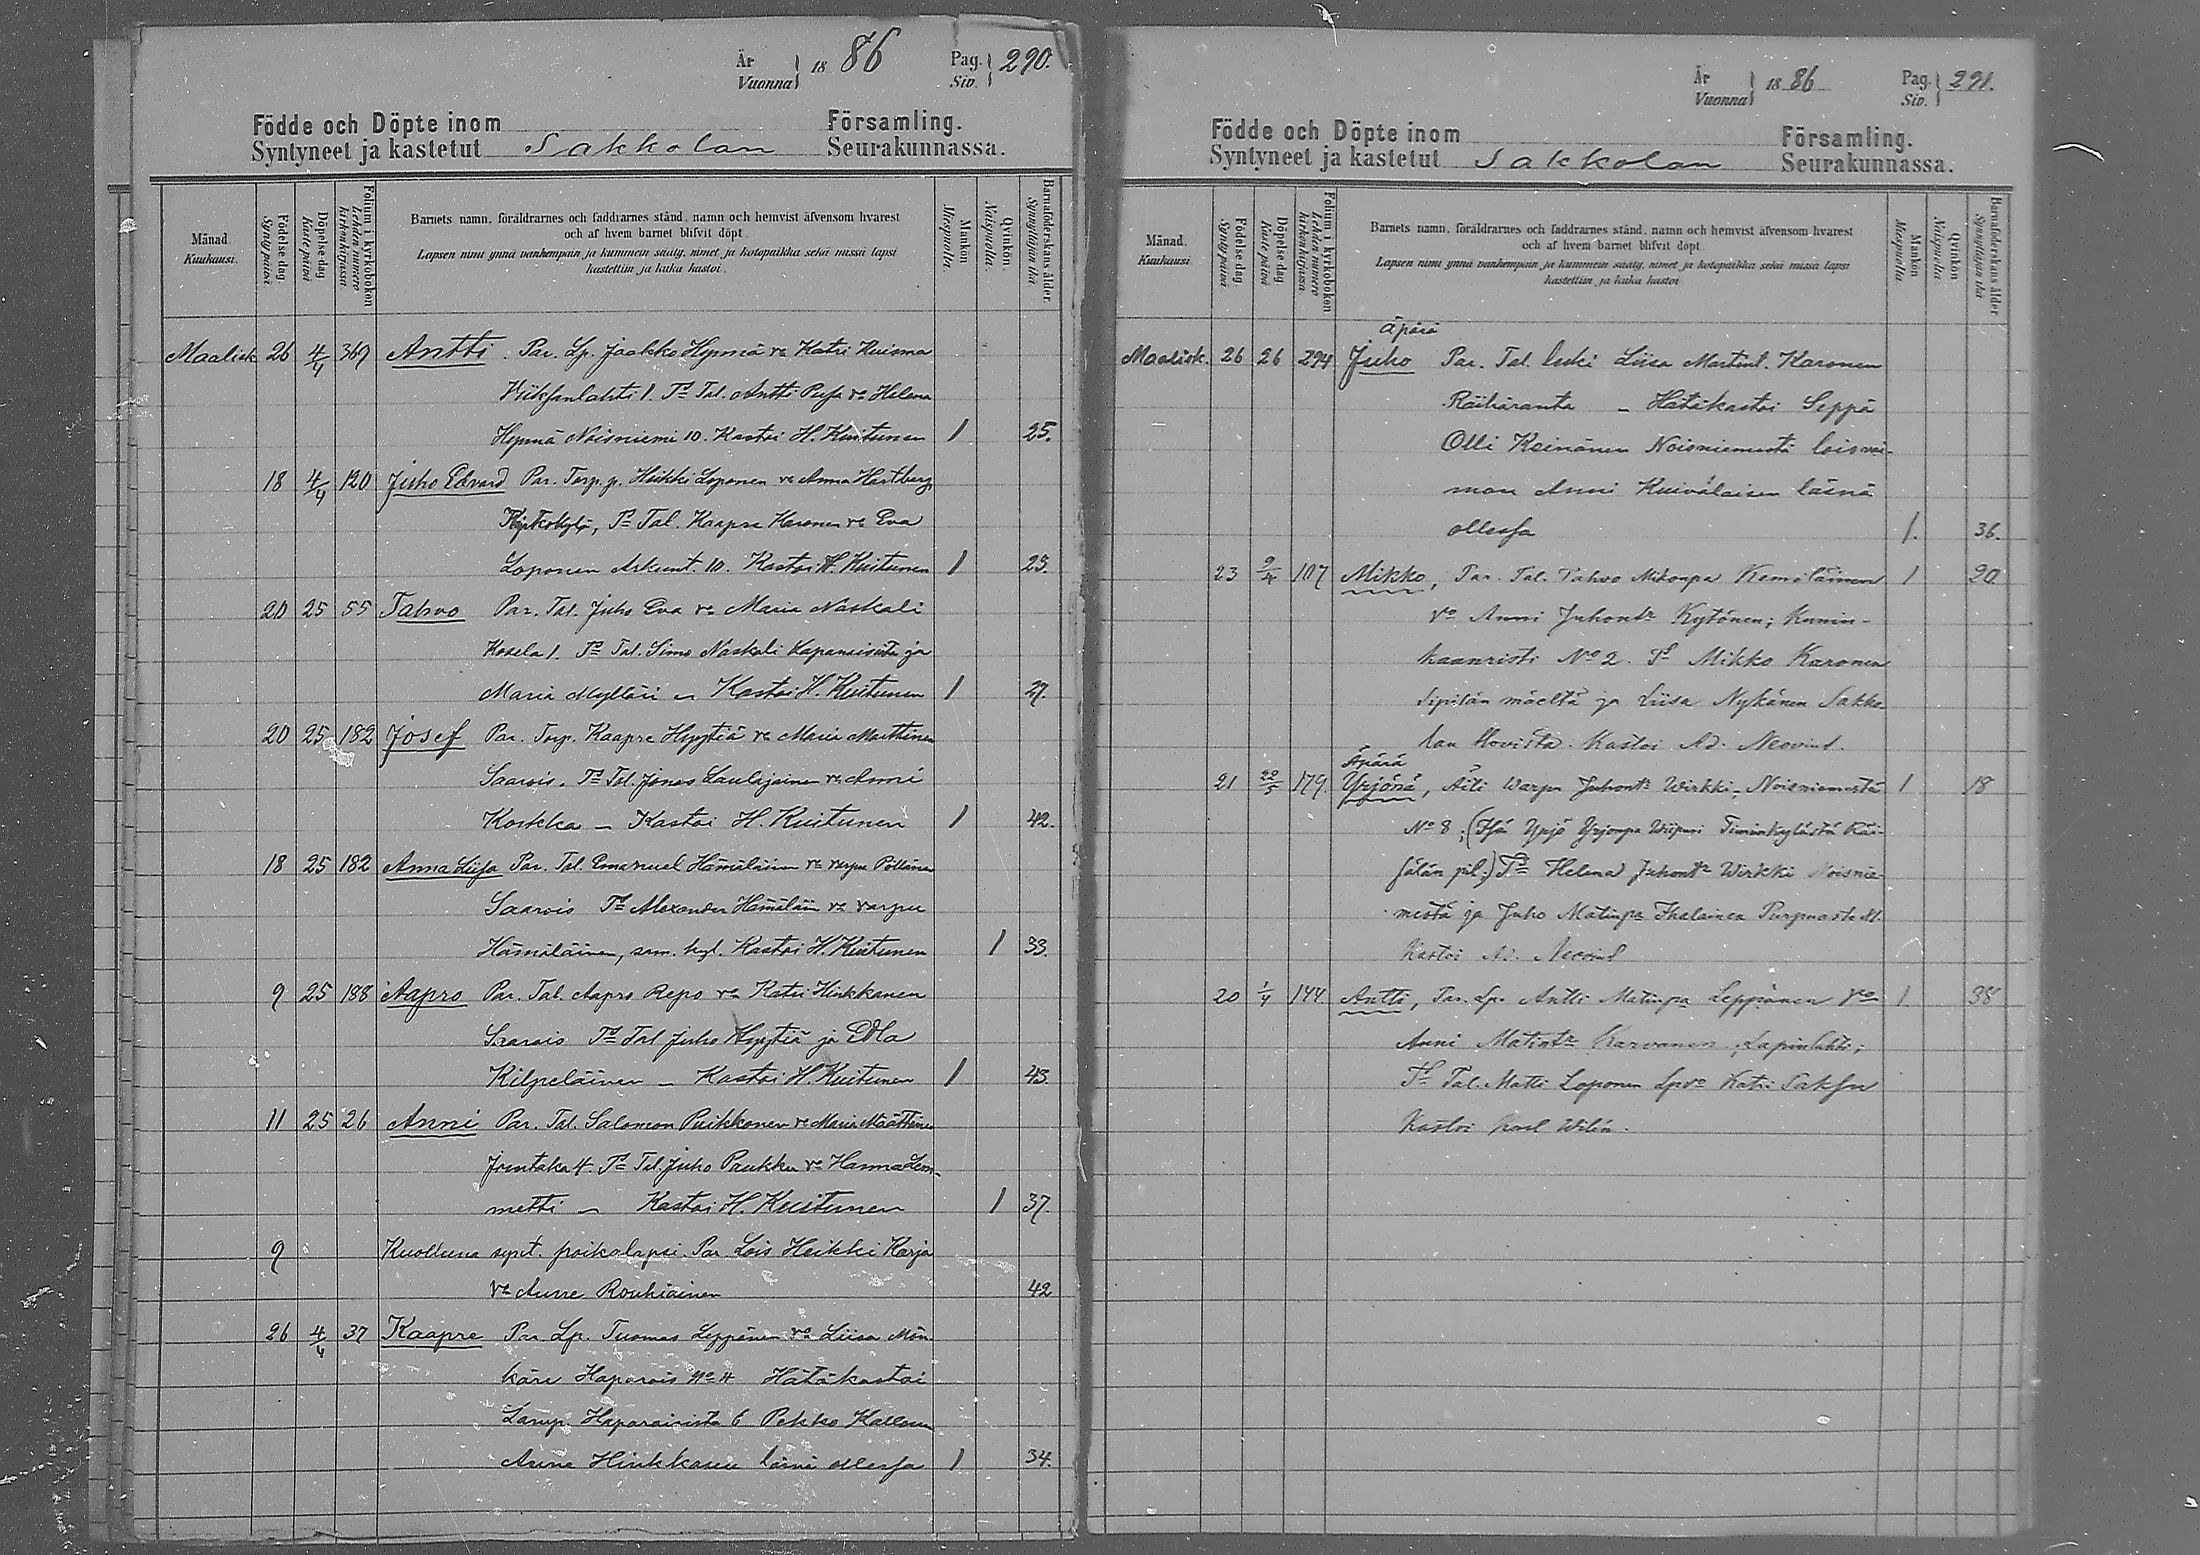 År
Vuonna 18 86 Pag. Siv. 290.
Födde och Döpte inom Församling.
Syntyneet ja kastetut Sakkolan Seurakunnassa.
Månad. Kuukausi.
Födelsedag. Syntypäivä
Döpelsedag Kastepäivä
Folium i kyrkoboken Lehden numero kirkonkirjassa
Barnets namn, föräldrarnes och faddrarnes stånd, namn och hemvist äfvensom hvarest
och af hvem barnet blifvit döpt.
Lapsen nimi ynnä vanhempain ja kummein sääty, nimet ja kotopaikka sekä missä lapsi
kastettiin ja kuka kastoi.
Mankön Miespuolia.
Qvinkön. Naispuolia.
Barnaföderskans ålder. Synnyttäjän ikä
Maalisk. 26 4/4 369 Antti. Par. Lp. Jaakko Hymä vo Katri Huisma
Viiksanlahti 1. Td Tal. Antti Pusa vo Helena
Hymä Noisniemi 10. Kastoi H. Kuitunen 1 25.
18 4/4 120 Juho Edvard Par. Torp. p. Heikki Loponen vo Anna Hartberg
Td Tal. Kaapre Karonen vo Eva
Loponen Arkunt. 10. Kastoi H. Kuitunen 1 25.
20 25 55 Tahvo Par. Tal. Juho Eva vo Maria Naskali
Kosela 1. Td Tal. Simo Naskali Vapamiselta ja
Maria Mylläri – Kastoi H. Kuitunen 1 27.
20 25 182 Josef Par. Torp. Kaapre Hyytiä vo Maria Marttinen
Saarois. Td Tal. Jonas Laulajainen vo Anni
Korkka – Kastoi H. Kuitunen 1 42.
18 25 182 Anna Liisa Par. Tal. Emanuel Hämäläinen vo Varpu Pöllänen
Saarois Td Alexander Hämäläin vo Varpu
Hämäläinen, sam. kyl. Kastoi H. Kuitunen 1 33.
9 25 188 Aapro Par. Tal. Aapro Repo vo Katri Hinkkanen
Saarois Td Tal Juho Hyytiä ja Edla
Kilpeläinen – Kastoi H. Kuitunen 1 43.
11 25 26 Anni Par. Tal. Salomon Puikkonen vo Maria Määttänen
Jountaka 4. Td Tal. Juho Paukku vo Hanna Lem-
metti – Kastoi H. Kuitunen 1 37.
9 Kuolluna synt. poikalapsi. Par Lois Heikki Karja
vo Anne Rouhiainen 42
26 4/4 37 Kaapre Par. Lp. Tuomas Leppänen vo Liisa Mön-
käre Haparois No 4 Hätäkastoi
Lamp. Haparaisista 6 Pekko Kallonen
Anna Hinkkanen läsnä ollessa 1 34.
År
Vuonna 18 86 Pag. Siv. 291.
Födde och Döpte inom Församling.
Syntyneet ja kastetut Sakkolan Seurakunnassa.
Månad. Kuukausi.
Födelsedag. Syntypäivä
Döpelsedag Kastepäivä
Folium i kyrkoboken Lehden numero kirkonkirjassa
Barnets namn, föräldrarnes och faddrarnes stånd, namn och hemvist äfvensom hvarest
och af hvem barnet blifvit döpt.
Lapsen nimi ynnä vanhempain ja kummein sääty, nimet ja kotopaikka sekä missä lapsi
kastettiin ja kuka kastoi
Mankön Miespuolia.
Qvinkön Naispuolia.
Barnaföderskans ålder Synnyttäjän ikä
Äpärä
Maalisk. 26 26 294 Juho Par. Tal. leski Liisa Martint. Karonen
Räiháranta – Hätäkastoi Seppä
Olli Keinänen Noisniemestä loisvai-
mon Anni Kuivalaisen läsnä
ollessa 1. 36.
23 9/4 107 Mikko, Par. Tal. Pahvo Mikonpa Kemiläinen 1 20
vo Anni Juhontr Kytönen; Kunin-
kaanristi No 2. Td Mikko Karonen
Sipilän mäeltä ja Liisa Nykänen Sakko
lan Hovista. Kastoi Ad. Neovius.
Äpärä
21 22/5 179. Yrjönä, Äiti Warpu Juhontr Wirkki, Noisniemestä 1 18
No 8; (Isä Yrjö Yrjonpa Wiipuri Kai-
sälän pit.) Td Helena Juhontr Wirkki Noisnie-
mestä ja Juho Matinpa Ihalainen Purpuasta
Kastoi Ad. Neovius
20 1/4 144. Antti, Par. Lp. Antti Matinpa Leppänen vo 1 38
Anni Matintr Karvanen, Lapinlahti;
Td Tal. Matti Loponen Lpvo Katri Saksa
Kastoi Karl Wilén.